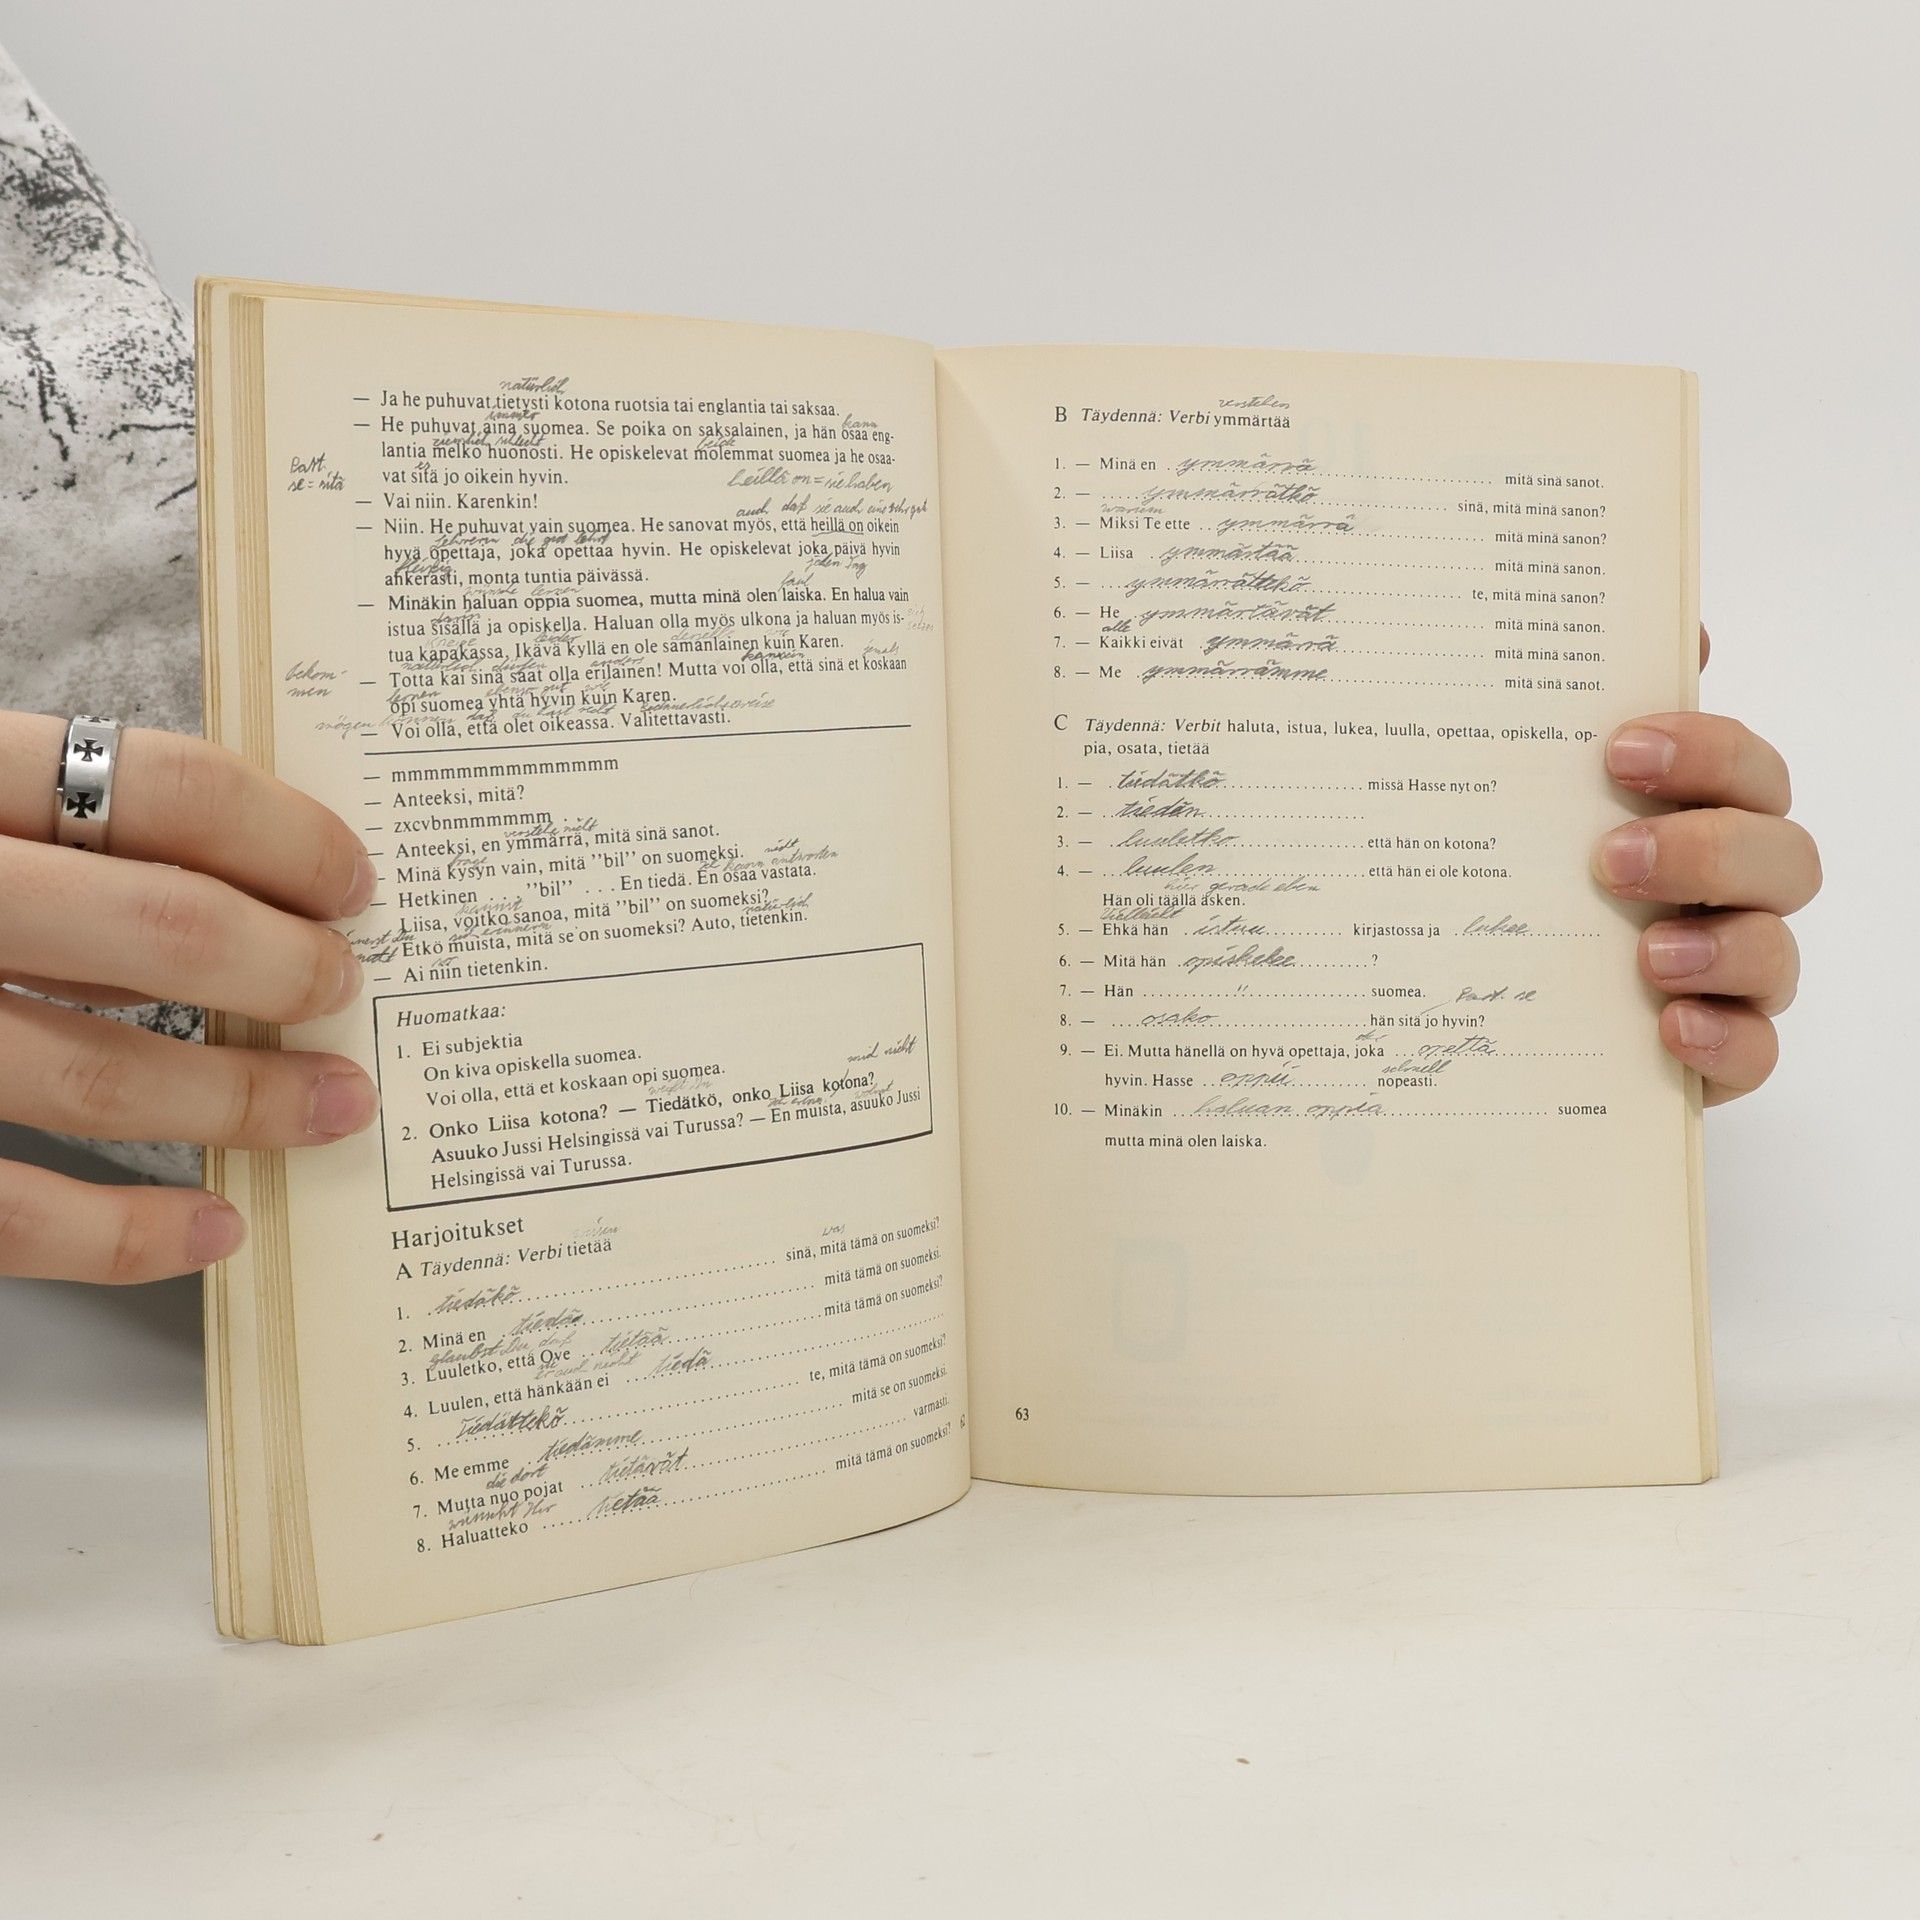 natürlich
— Ja he puhuvat tietysti kotona ruotsia tai englantia tai saksaa.
immer
kann
— He puhuvat aina suomea. Se poika on saksalainen, ja hän osaa eng-
ziemlich schlecht
beide
lantia melko huonosti. He opiskelevat molemmat suomea ja he osaa-
Part.
se = sitä
es
vat sitä jo oikein hyvin.
heillä on = sie haben
— Vai niin. Karenkin!
auch daß sie auch eine sehr gute
— Niin. He puhuvat vain suomea. He sanovat myös, että heillä on oikein
Lehrerin die gut lehrt
hyvä opettaja, joka opettaa hyvin. He opiskelevat joka päivä hyvin
fleißig
jeden Tag
ahkerasti, monta tuntia päivässä.
wünsche lernen
faul
— Minäkin haluan oppia suomea, mutta minä olen laiska. En halua vain
istua sisällä ja opiskella. Haluan olla myös ulkona ja haluan myös is-
Kneipe
leider
derselbe
tua kapakassa. Ikävä kyllä en ole samanlainen kuin Karen.
natürlich dürfen anders
jemals
— Totta kai sinä saat olla erilainen! Mutta voi olla, että sinä et koskaan
bekom-
men
lernen
ebenso gut wie
opi suomea yhtä hyvin kuin Karen.
mögen können daß du hast recht
— Voi olla, että olet oikeassa. Valitettavasti.
— mmmmmmmmmmmmmm
— Anteeksi, mitä?
— zxcvbnmmmmmm . .
verstehe nicht
— Anteeksi, en ymmärrä, mitä sinä sanot.
frage
— Minä kysyn vain, mitä ”bil” on suomeksi.
nicht
kann antworten
— Hetkinen . . . ”bil” . . . En tiedä. En osaa vastata.
kannst
Liisa, voitko sanoa, mitä ”bil” on suomeksi?
sich erinnern
natürlich
Etkö muista, mitä se on suomeksi? Auto, tietenkin.
so
— Ai niin tietenkin.
Huomatkaa:
1. Ei subjektia
On kiva opiskella suomea.
Voi olla, että et koskaan opi suomea.
weißt Du
2. Onko Liisa kotona? — Tiedätkö, onko Liisa kotona?
wohnt
Asuuko Jussi Helsingissä vai Turussa? — En muista, asuuko Jussi
Helsingissä vai Turussa.
Harjoitukset
wissen
A Täydennä: Verbi tietää
was
1. tiedäkö sinä, mitä tämä on suomeksi?
2. Minä en tiedä mitä tämä on suomeksi.
glaubst Du, daß
3. Luuletko, että Ove tietää mitä tämä on suomeksi?
er auch nicht
4. Luulen, että hänkään ei tiedä
5. Tiedättekö te, mitä tämä on suomeksi?
6. Me emme tiedämme mitä se on suomeksi.
die dort
7. Mutta nuo pojat tietävät varmasti.
wünscht Ihr
8. Haluatteko tietää mitä tämä on suomeksi?
62
verstehen
B Täydennä: Verbi ymmärtää
1. — Minä en ymmärrä mitä sinä sanot.
2. — ymmärrätkö sinä, mitä minä sanon?
warum
3. — Miksi Te ette ymmärrä mitä minä sanon?
4. — Liisa ymmärtää mitä minä sanon.
5. — ymmärrättekö te, mitä minä sanon?
6. — He ymmärtävät mitä minä sanon.
alle
7. — Kaikki eivät ymmärrä mitä minä sanon.
8. — Me ymmärrämme mitä sinä sanot.
C Täydennä: Verbit haluta, istua, lukea, luulla, opettaa, opiskella, op-
pia, osata, tietää
1. — tiedätkö missä Hasse nyt on?
2. — tiedän
3. — luuletko että hän on kotona?
4. — luulen että hän ei ole kotona.
hier gerade eben
Hän oli täällä äsken.
Vielleicht
5. — Ehkä hän istuu kirjastossa ja lukee
6. — Mitä hän opiskelee ?
7. — Hän " suomea.
Part. se
8. — osako hän sitä jo hyvin?
der
9. — Ei. Mutta hänellä on hyvä opettaja, joka opettä
schnell
hyvin. Hasse oppii nopeasti.
10. — Minäkin haluan oppia suomea
mutta minä olen laiska.
63